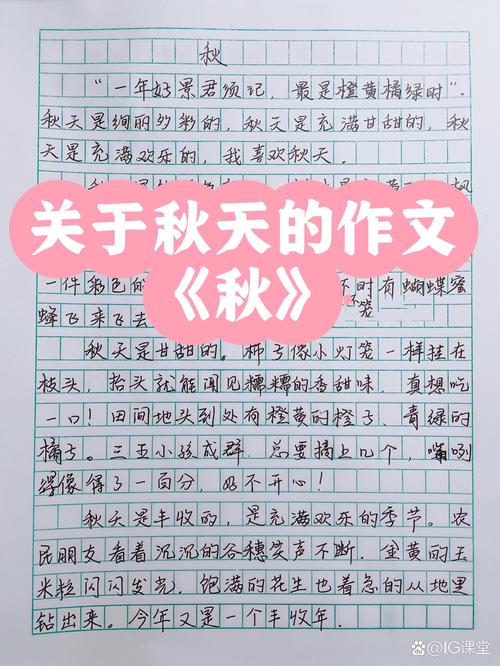 秋
“一年好景君须记，最是橙黄橘绿时”.
秋天是绚丽多彩的，秋天是充满甘甜的，秋
天是充满欢乐的，我喜欢秋天.
关于秋天的作文
一件彩色的 时有蝴蝶蜜
《秋》
蜂飞来飞去
秋天是甘甜的。柿子像小灯笼一样挂在
枝头，抬头就能闻见糯糯的香甜味，真想吃
一口！田间地头到处有橙黄的橙子、青绿的
橘子。三五小孩成群，总要摘上几个，嘴咧
得像得了一百分，好不开心！
秋天是丰收的，是充满欢乐的季节。农
民朋友看着沉沉的谷穗笑声不断，金黄的玉
米粒闪闪发光，饱满的花生也着急的从地里
钻出来。今年又是一个丰收年。
@IG课堂